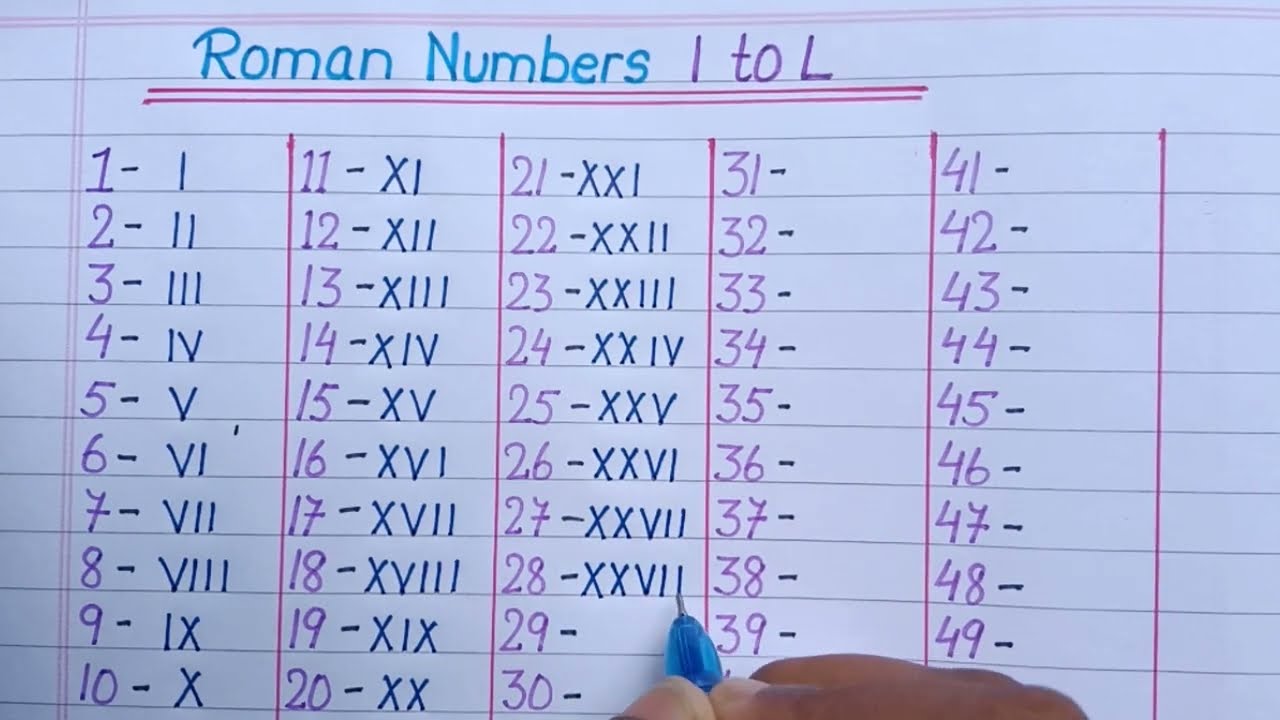 Roman Numbers I to L
1- I
2- II
3- III
4- IV
5- V
6- VI
7- VII
8- VIII
9- IX
10- X
11- XI
12- XII
13- XIII
14- XIV
15- XV
16- XVI
17- XVII
18- XVIII
19- XIX
20- XX
21- XXI
22- XXII
23- XXIII
24- XXIV
25- XXV
26- XXVI
27- XXVII
28- XXVII
29-
30-
31-
32-
33-
34-
35-
36-
37-
38-
39-
41-
42-
43-
44-
45-
46-
47-
48-
49-